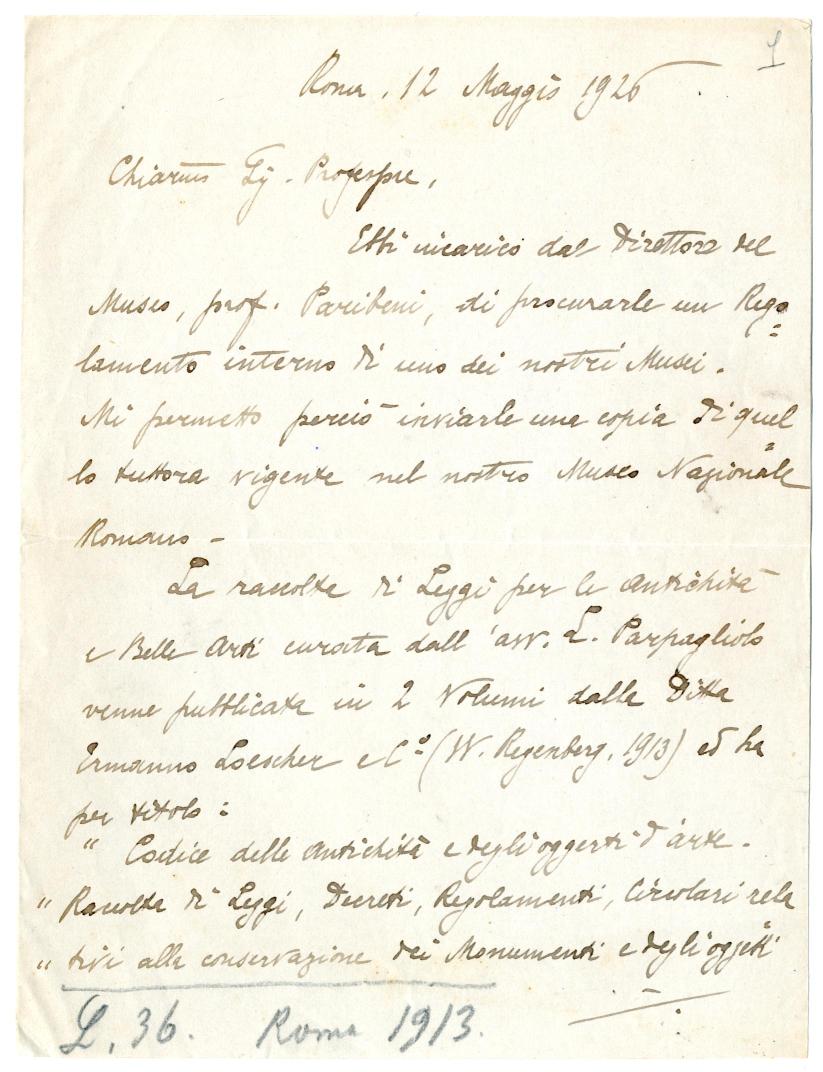 1
Roma, 12 Maggio 1926
Chiarmo Sig. Professore,
Ebbi incarico dal Direttore del
Museo, prof. Paribeni, di procurarle un Rego=
lamento interno di uno dei nostri Musei.
Mi permetto perciò inviarle una copia di quel=
lo tuttora vigente nel nostro Museo Nazionale
Romano –
La raccolta di Leggi per le Antichità
e Belle Arti curata dall'avv. L. Parpagliolo
venne pubblicata in 2 Volumi dalla Ditta
Ermanno Loescher e Cº (W. Regenberg, 1913) ed ha
per titolo:
" Codice delle Antichità e degli oggetti d'arte.
" Raccolta di Leggi, Decreti, Regolamenti, Circolari rela=
" tivi alla conservazione dei Monumenti e degli oggetti
L. 36. Roma 1913.